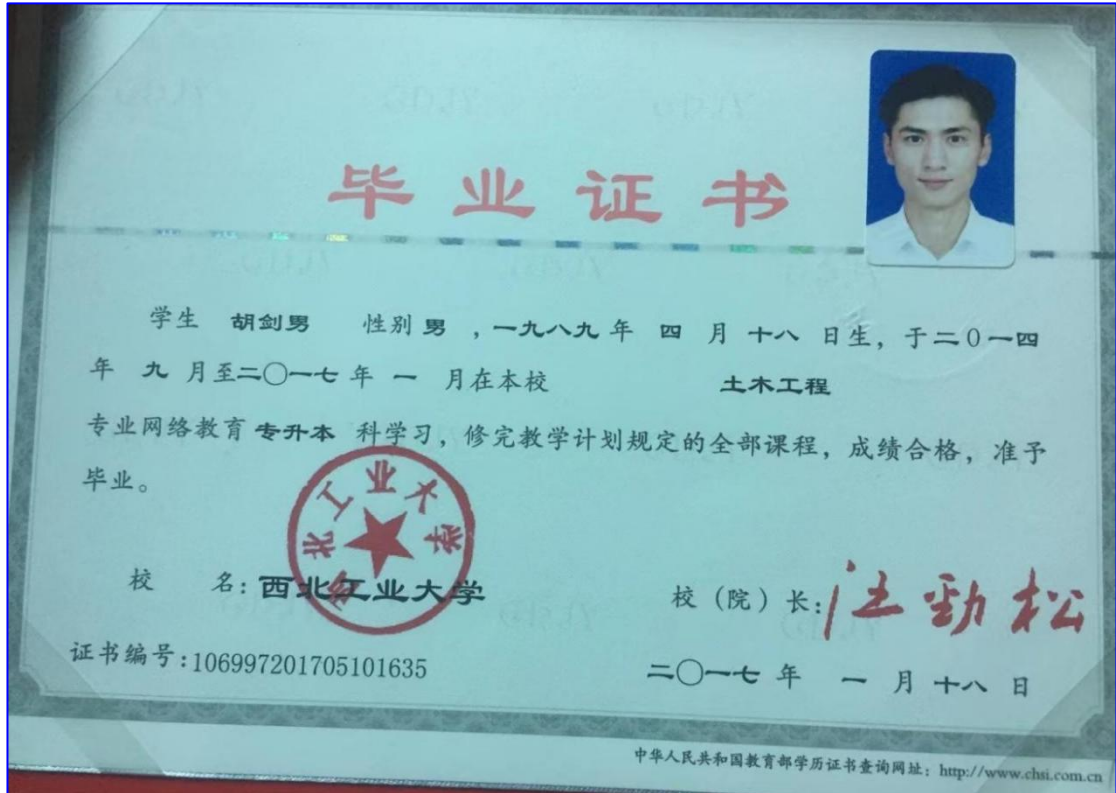 毕业证书
学生 胡剑男 性别 男 ，一九八九 年 四 月 十八 日生，于二0一四
年 九 月至二〇一七 年 一 月在本校 土木工程
专业网络教育 专升本 科学习，修完教学计划规定的全部课程，成绩合格，准予
毕业。
西北工业大学
校 名：西北工业大学
校（院）长：汪劲松
证书编号：106997201705101635
二〇一七 年 一 月 十八 日
中华人民共和国教育部学历证书查询网址：http://www.chsi.com.cn